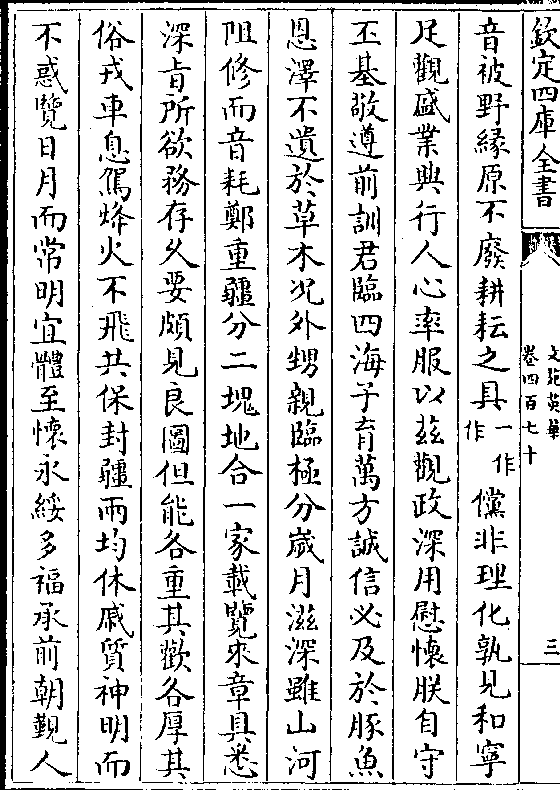 欽定四庫全書
文苑英華
卷四百七十
三
音被野縁原不廢耕耘之具一作作儻非理化孰見和寧
足觀盛業興行人心率服以兹觀政深用慰懷朕自守
丕基敬遵前訓君臨四海子育萬方誠信必及於豚魚
恩澤不遺於草木况外甥親臨極分歲月滋深雖山河
阻修而音耗鄭重疆分二塊地合一家載覽來章具悉
深㫖所欲務存久要頗見良圖但能各重其歡各厚其
俗戎車息駕烽火不飛共保封疆兩均休戚質神明而
不惑覽日月而常明宜體至懷永綏多福承前朝覲人